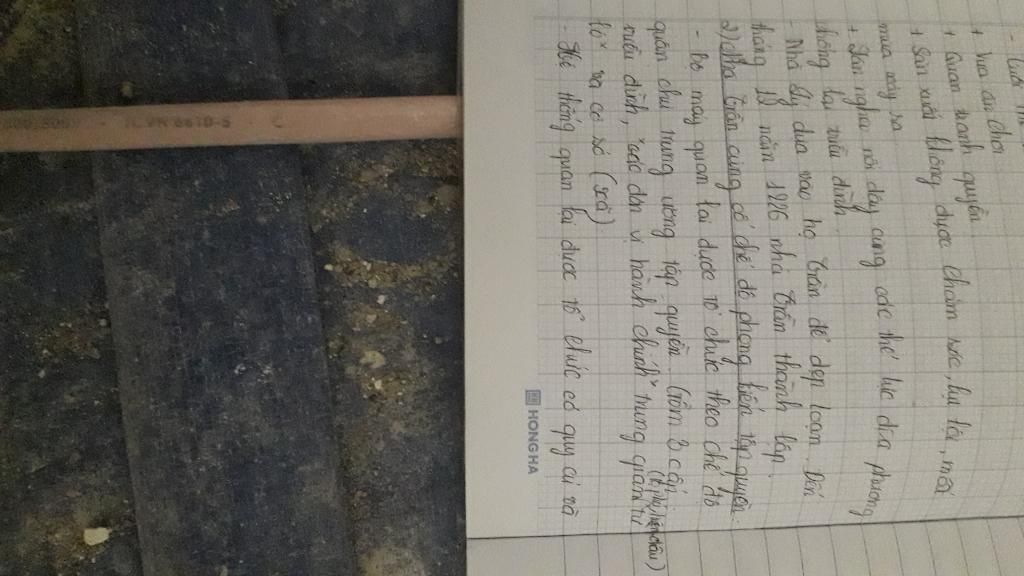 + Vua ăn chơi
+ Quan tranh quyền.
+ Sản xuất không được chăm sóc, lụt lội, mất
mùa xảy ra
+ Dân nghèo nổi dậy cùng các thế lực địa phương
chống lại triều đình.
- Nhà Lý dựa vào họ Trần để dẹp loạn. Đến
tháng 12 năm 1226 nhà Trần thành lập.
2) Nhà Trần củng cố chế độ phong kiến tập quyền.
- Bộ máy quan lại được tổ chức theo chế độ
quân chủ trung ương tập quyền. Gồm 3 cấp:
triều đình, các đơn vị hành chính trung gian từ
(lộ, phủ, huyện, châu)
lộ và cơ sở (xã)
- Hệ thống quan lại được tổ chức có quy củ và
HONG HA
TCVN 6610-5